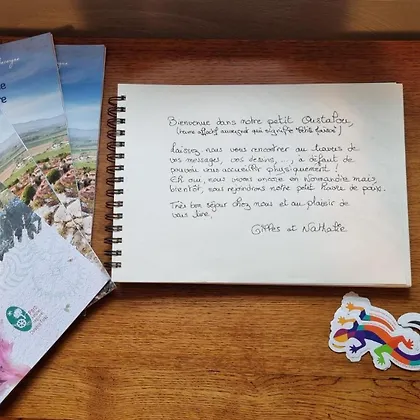 Bienvenue dans notre petit Oustalou,
Laissez nous vous rencontrer au travers de
vos messages, vos dessins, ..., à défaut de
pouvoir vous accueillir physiquement !
Eh oui, nous vivons encore en Normandie mais
bientôt, nous rejoindrons notre petit havre de paix.
Très bon séjour chez nous et au plaisir de
vous lire,
Gilles et Nathalie